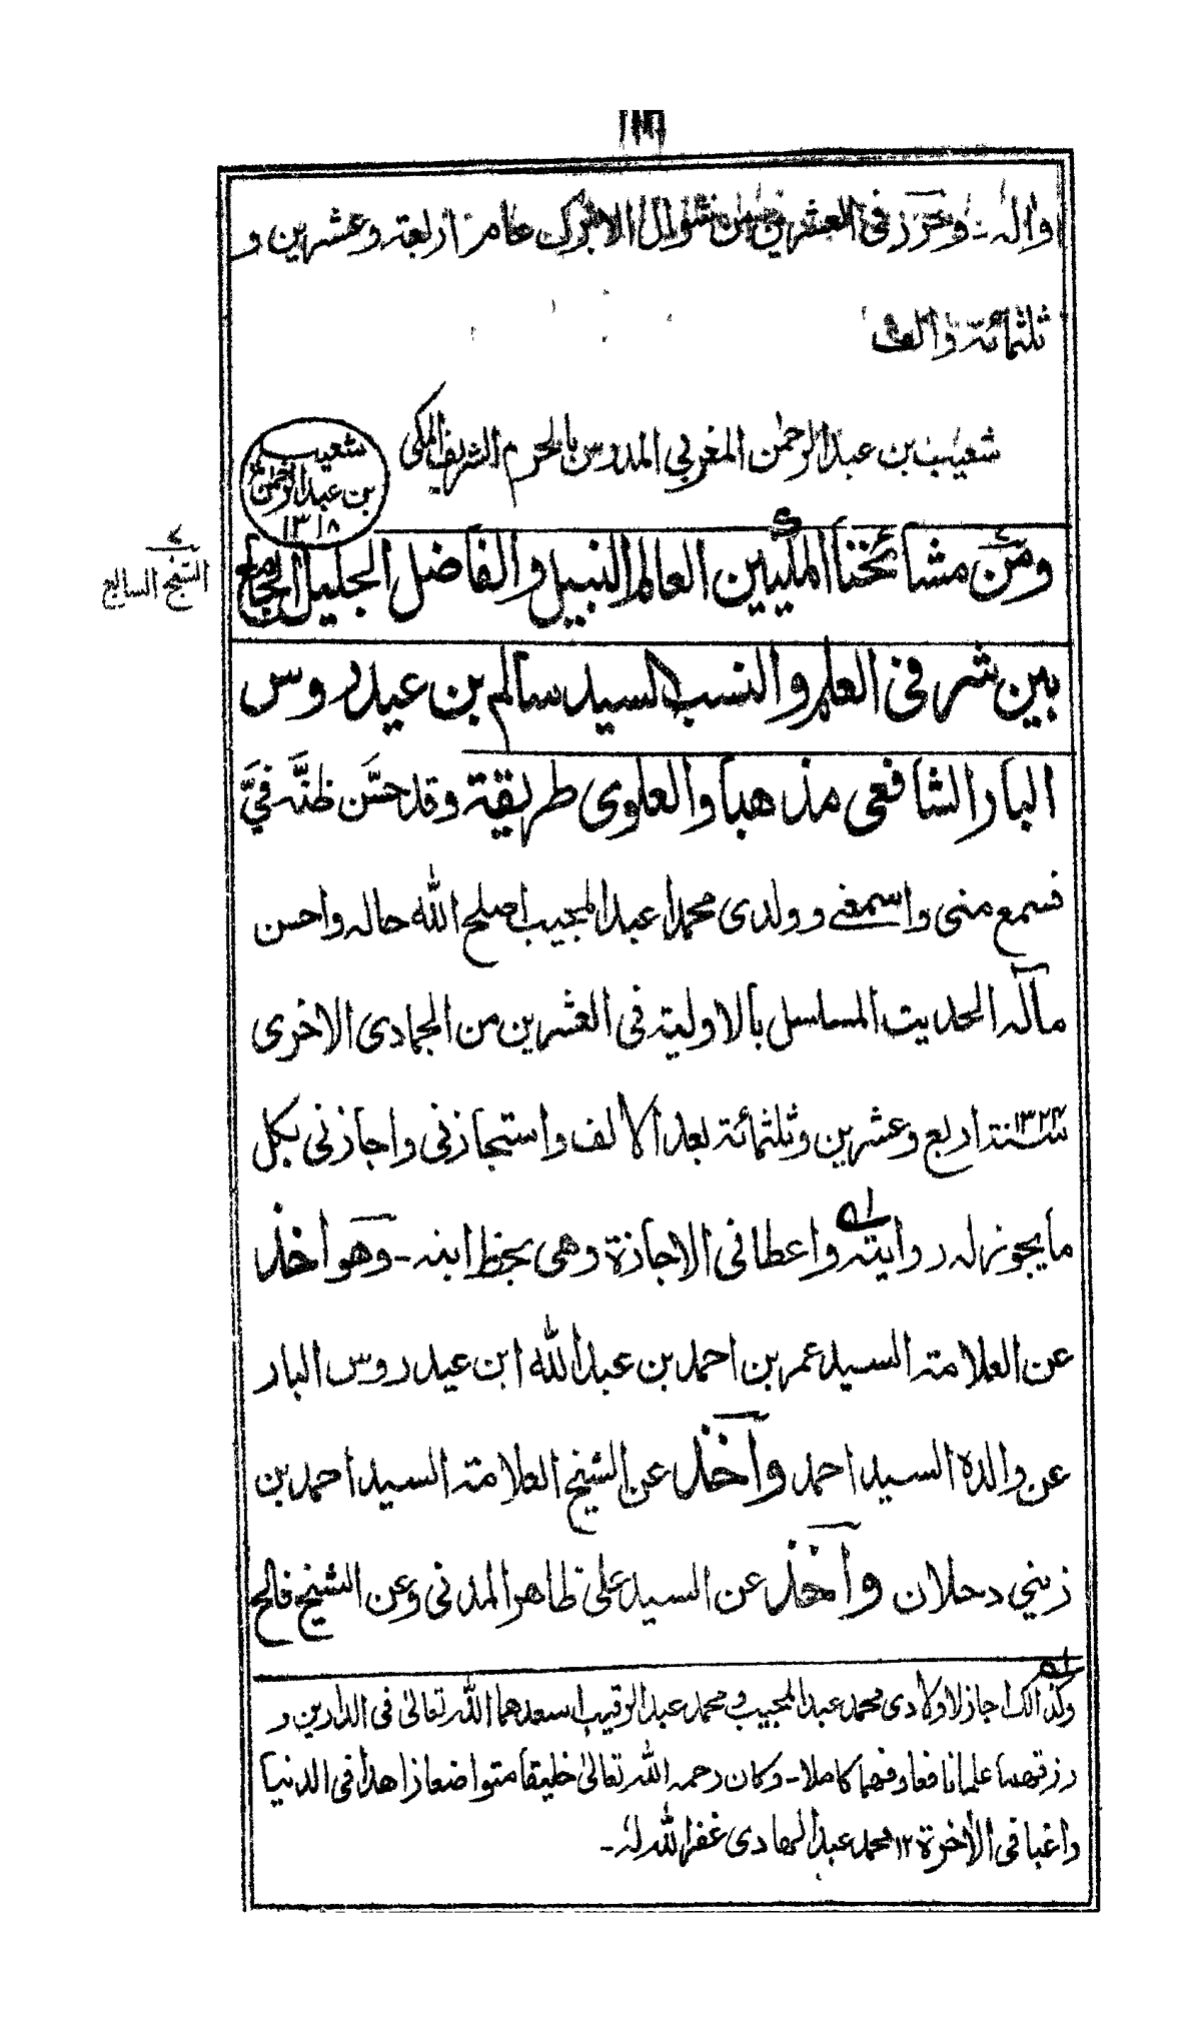 واله - وحرر فى العشرين من شوال الابرك عام اربعة وعشرين و
ثلثمائة والف
شعيب بن عبدالرحمن المغربي المدرس بالحرم الشريف المكى
شعيب
بن عبدالرحمن
١٣١٨
ومن مشائخنا المكيين العالم النبيل والفاضل الجليل الجامع
٧
الشيخ السابع
بين شرفى العلم والنسب السيد سالم بن عيدروس
البار الشافعى مذهبا والعلوى طريقة وقد حسّن ظنّه فيَّ
فسمع منى واسمعنى وولدى محمدا عبدالمجيب اصلح الله حاله واحسن
مآله الحديث المسلسل بالاولية فى العشرين من الجمادى الاخرى
سنة ١٣٢٤ اربع وعشرين وثلثمائة بعد الالف واستجازنى واجازنى بكل
مايجوز له روايته واعطانى الاجازة وهى بخط ابنه - وهو اخذ
عن العلامة السيد عمر بن احمد بن عبدالله ابن عيدروس البار
عن والده السيد احمد وآخذ عن الشيخ العلامة السيد احمد بن
زيني دحلان وآخذ عن السيد على ظاهر المدنى وعن الشيخ فالح
وكذالك اجاز لاولادى محمد عبدالمجيب ومحمد عبدالرقيب اسعدهما الله تعالى فى الدارين و
رزقهما علما نافعا وفهما كاملا - وكان رحمه الله تعالى خليقا متواضعا زاهدا فى الدنيا
راغبا فى الأخرة ١٢ محمد عبدالهادى غفر الله له -